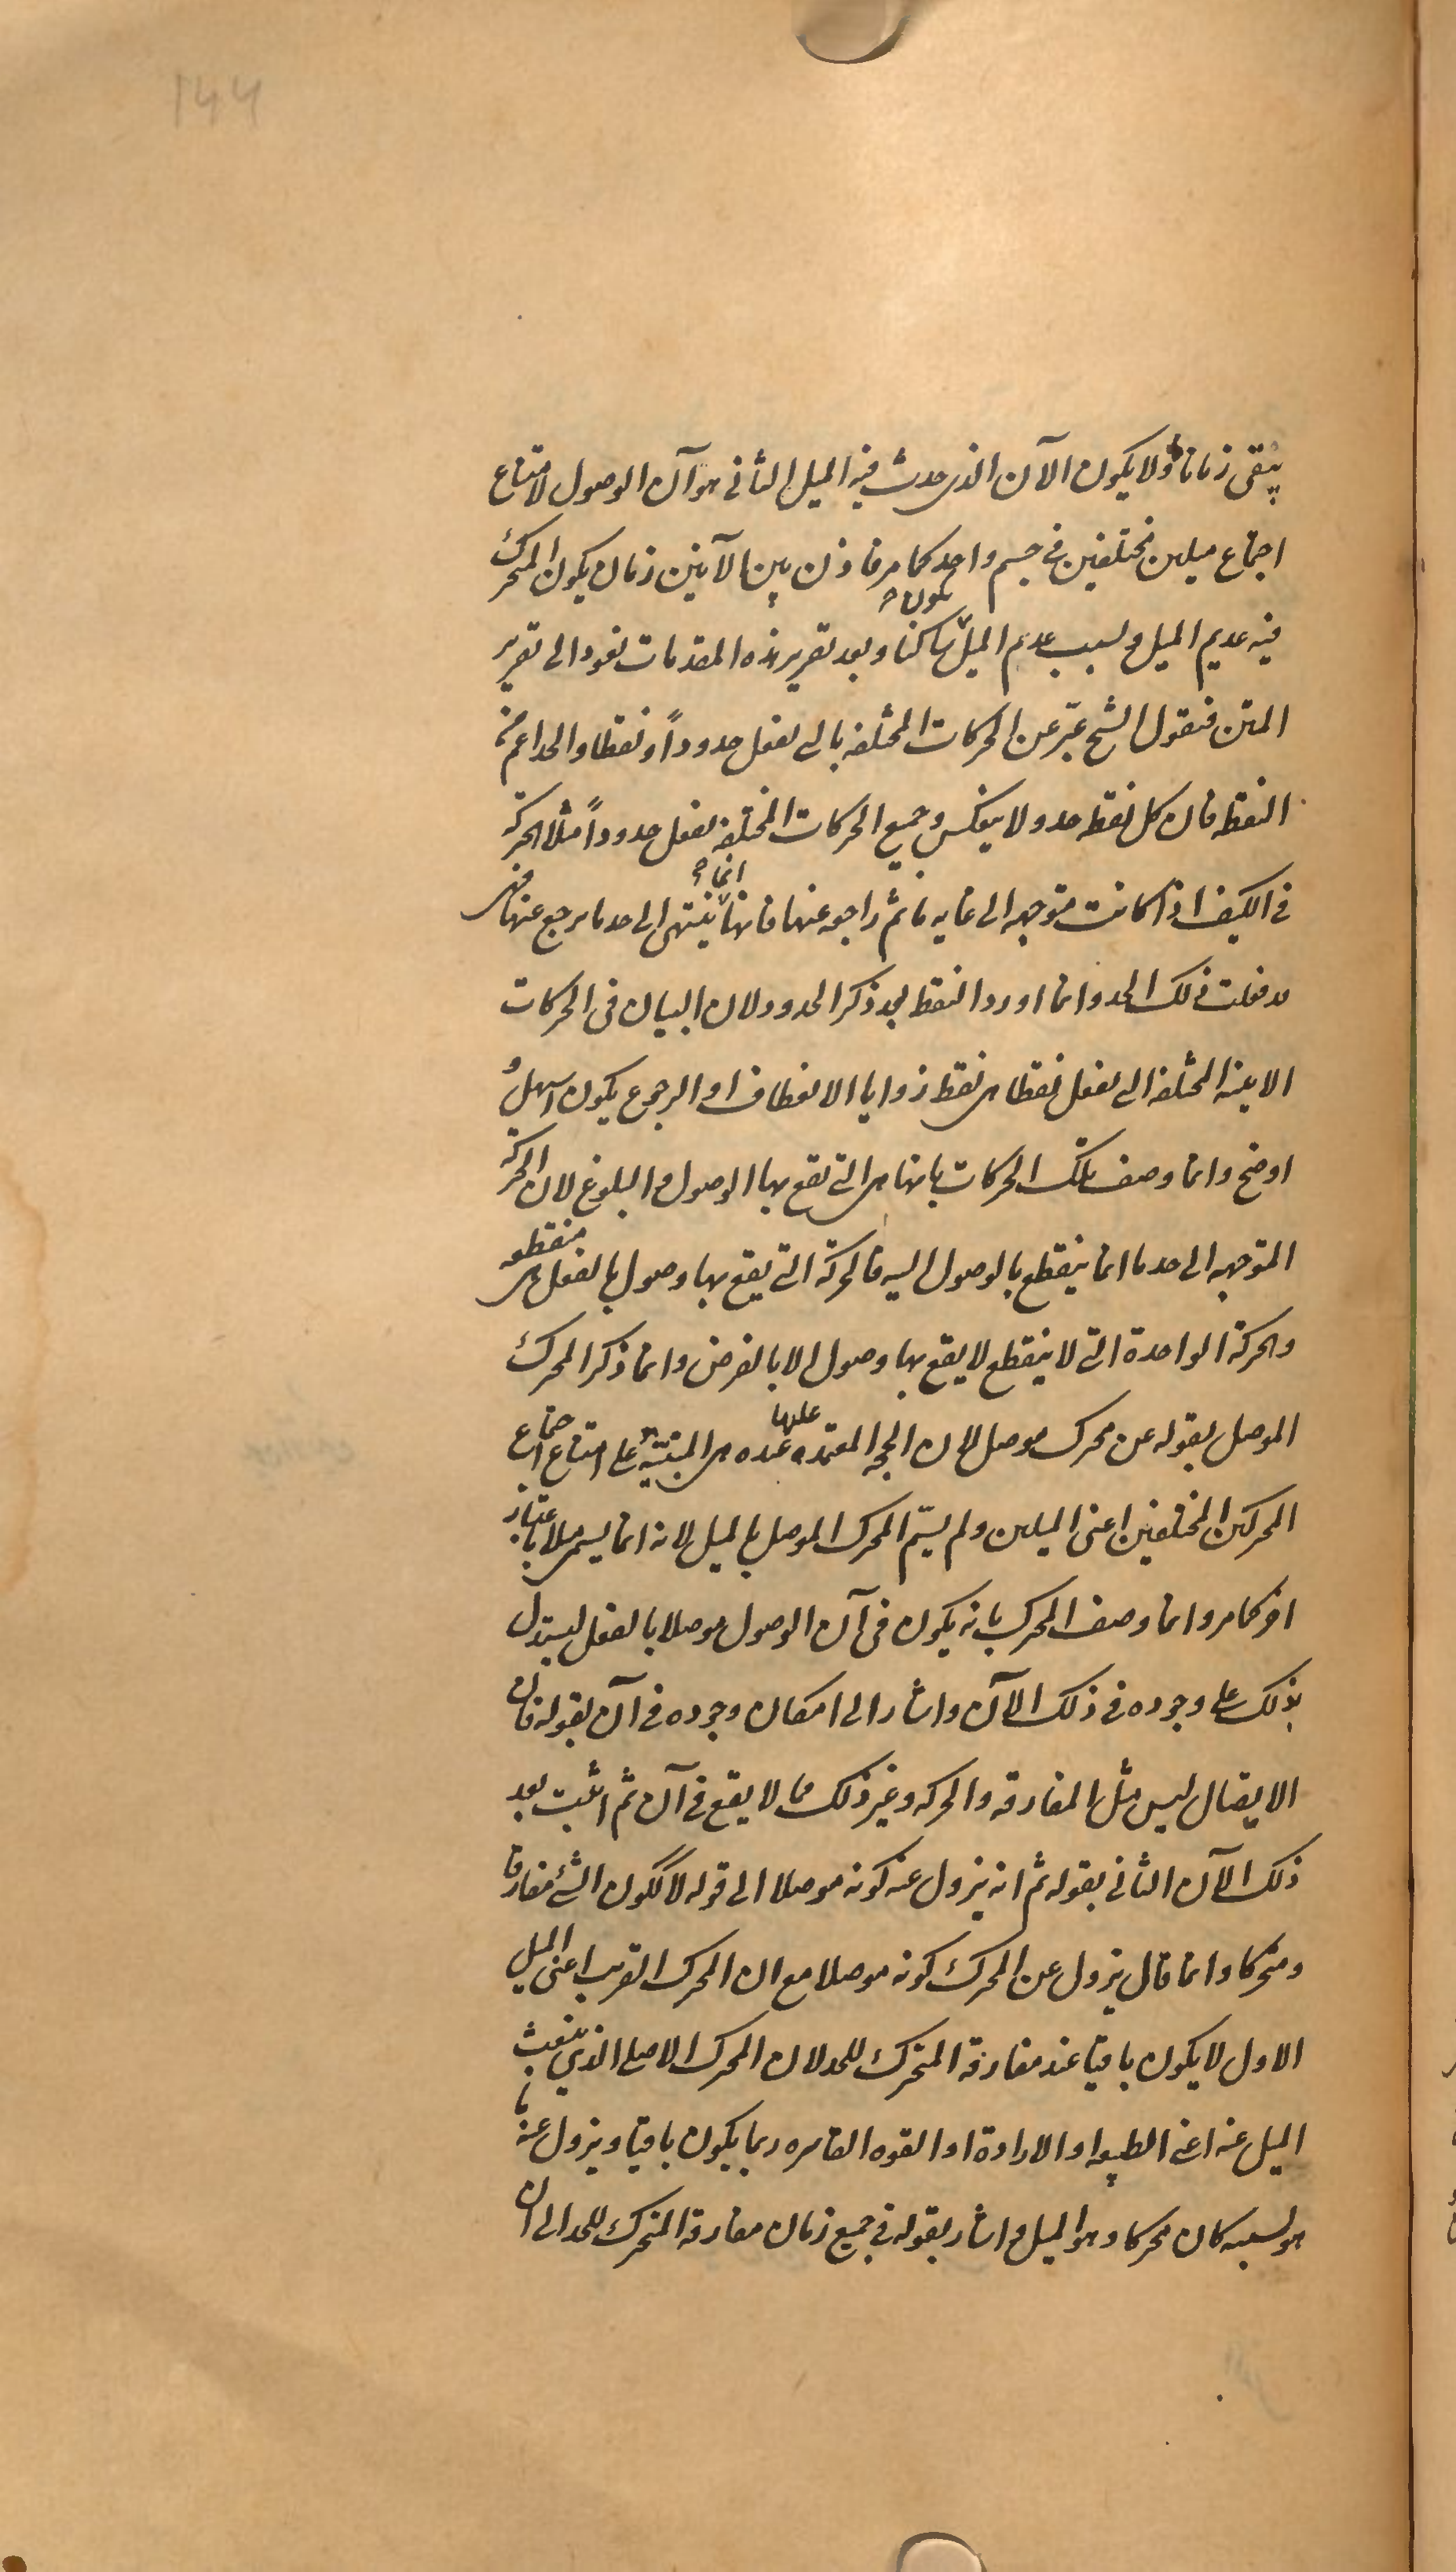 ۱۴۴
يبقى زمانا ولا يكون الآن الذى حدث فيه الميل الثانى هو آن الوصول لامتناع
اجتماع ميلين مختلفين فى جسم واحد كما مر فاذن بين الآنين زمان يكون المتحرك
يكون
فيه عديم الميل و لسبب عدم الميل ساكنا وبعد تقرير هذه المقدمات نعود الى تقرير
المتن فنقول الشيخ عبّر عن الحركات المختلفه بالتى تفعل حدوداً ونقطا والحد اعم من
النقطه فان كل نقطه حد ولا ينعكس وجميع الحركات المختلفه تفعل حدوداً مثلا الحركة
انما
فى الكيف اذا كانت متوجهه الى غايه ما ثم راجعه عنها فانها ينتهى الى حد ما يرجع عنها فهى
قد فعلت ذلك الحد وانما اورد النقط بعد ذكر الحدود لان البيان فى الحركات
الاينيه المختلفه التى تفعل نقطا هى نقط زوايا الانعطاف او الرجوع يكون اسهل و
اوضح وانما وصف تلك الحركات بانها هى التى تقع بها الوصول والبلوغ لان الحركة
المتوجهه الى حد ما انما ينقطع بالوصول اليه فالحركة التى يقع بها وصول بالفعل هى منقطعه
والحركة الواحدة التى لا ينقطع لا يقع بها وصول الا بالفرض وانما ذكر المحرك
عليها
الموصل بقوله عن محرك موصل لان الحجه المعتمده عنده هى المبنيّه على امتناع اجتماع
المحركين المختلفين اعنى الميلين ولم يسمّ المحرك الموصل بالميل لانه انما يسمى ميلا باعتبار
اخر كما مر وانما وصف المحرك بانه يكون فى آن الوصول موصلا بالفعل ليستدل
بذلك على وجوده فى ذلك الآن واشار الى امكان وجوده فى آن بقوله فان
الايصال ليس مثل المفارقه والحركه وغير ذلك مما لا يقع فى آن ثم اثبت بعد
ذلك الآن الثانى بقوله ثم انه يزول عنه كونه موصلا الى قوله لا لكون الشئ مفارقا
ومتحركا وانما قال يزول عن المحرك كونه موصلا مع ان المحرك القريب اعنى الميل
الاول لا يكون باقيا عند مفارقة المتحرك للحد لان المحرك الاصلى الذى ينبعث
الميل عنه اعنى الطبيعه او الارادة او القوه القاسره ربما يكون باقيا ويزول عنه ما
هو لسببه كان محركا وهو الميل واشار بقوله فى جميع زمان مفارقة المتحرك للحد الى ان